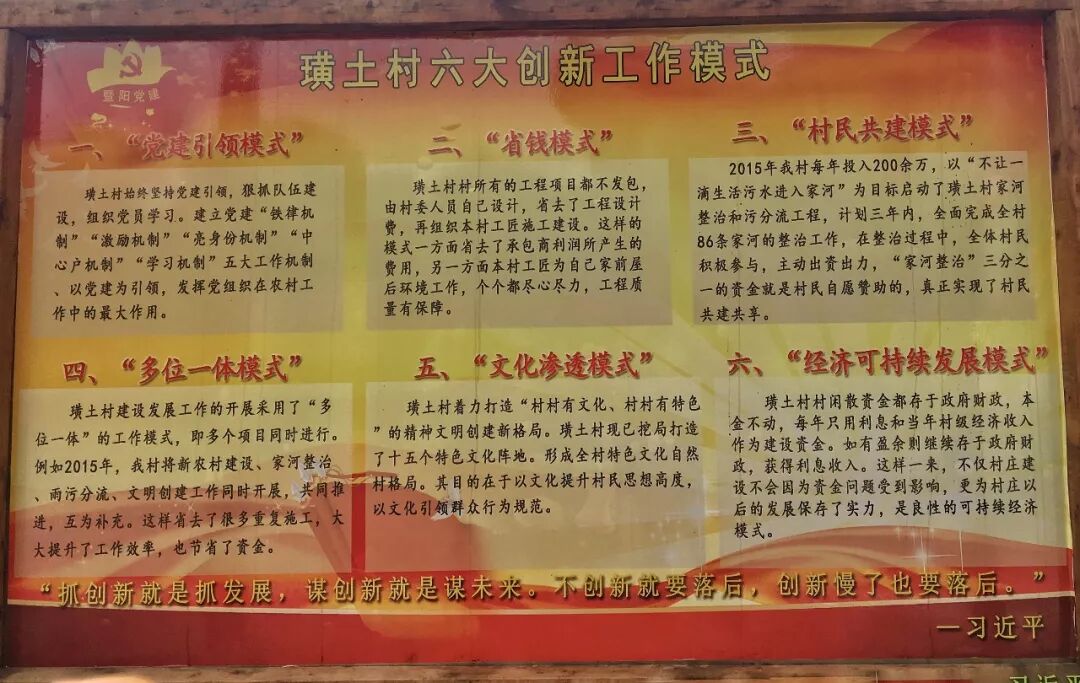 暨阳党建
璜土村六大创新工作模式
一、“党建引领模式”
璜土村始终坚持党建引领，狠抓队伍建
设，组织党员学习。建立党建“铁律机
制”“激励机制”“亮身份机制”“中
心户机制”“学习机制”五大工作机制
、以党建为引领，发挥党组织在农村工
作中的最大作用。
二、“省钱模式”
璜土村村所有的工程项目都不发包，
由村委人员自己设计，省去了工程设计
费，再组织本村工匠施工建设。这样的
模式一方面省去了承包商利润所产生的
费用，另一方面本村工匠为自己家前屋
后环境工作，个个都尽心尽力，工程质
量有保障。
三、“村民共建模式”
2015年我村每年投入200余万，以“不让一
滴生活污水进入家河”为目标启动了璜土村家河
整治和污分流工程，计划三年内，全面完成全村
86条家河的整治工作，在整治过程中，全体村民
积极参与，主动出资出力，“家河整治”三分之
一的资金就是村民自愿赞助的，真正实现了村民
共建共享。
四、“多位一体模式”
璜土村建设发展工作的开展采用了“多
位一体”的工作模式，即多个项目同时进行。
例如2015年，我村将新农村建设、家河整治
、雨污分流、文明创建工作同时开展，共同推
进，互为补充。这样省去了很多重复施工，大
大提升了工作效率，也节省了资金。
五、“文化渗透模式”
璜土村着力打造“村村有文化、村村有特色
”的精神文明创建新格局。璜土村现已挖局打造
了十五个特色文化阵地。形成全村特色文化自然
村格局。其目的在于以文化提升村民思想高度，
以文化引领群众行为规范。
六、“经济可持续发展模式”
璜土村村闲散资金都存于政府财政，本
金不动，每年只用利息和当年村级经济收入
作为建设资金。如有盈余则继续存于政府财
政，获得利息收入。这样一来，不仅村庄建
设不会因为资金问题受到影响，更为村庄以
后的发展保存了实力，是良性的可持续经济
模式。
“抓创新就是抓发展，谋创新就是谋未来。不创新就要落后，创新慢了也要落后。”
—习近平
习近平